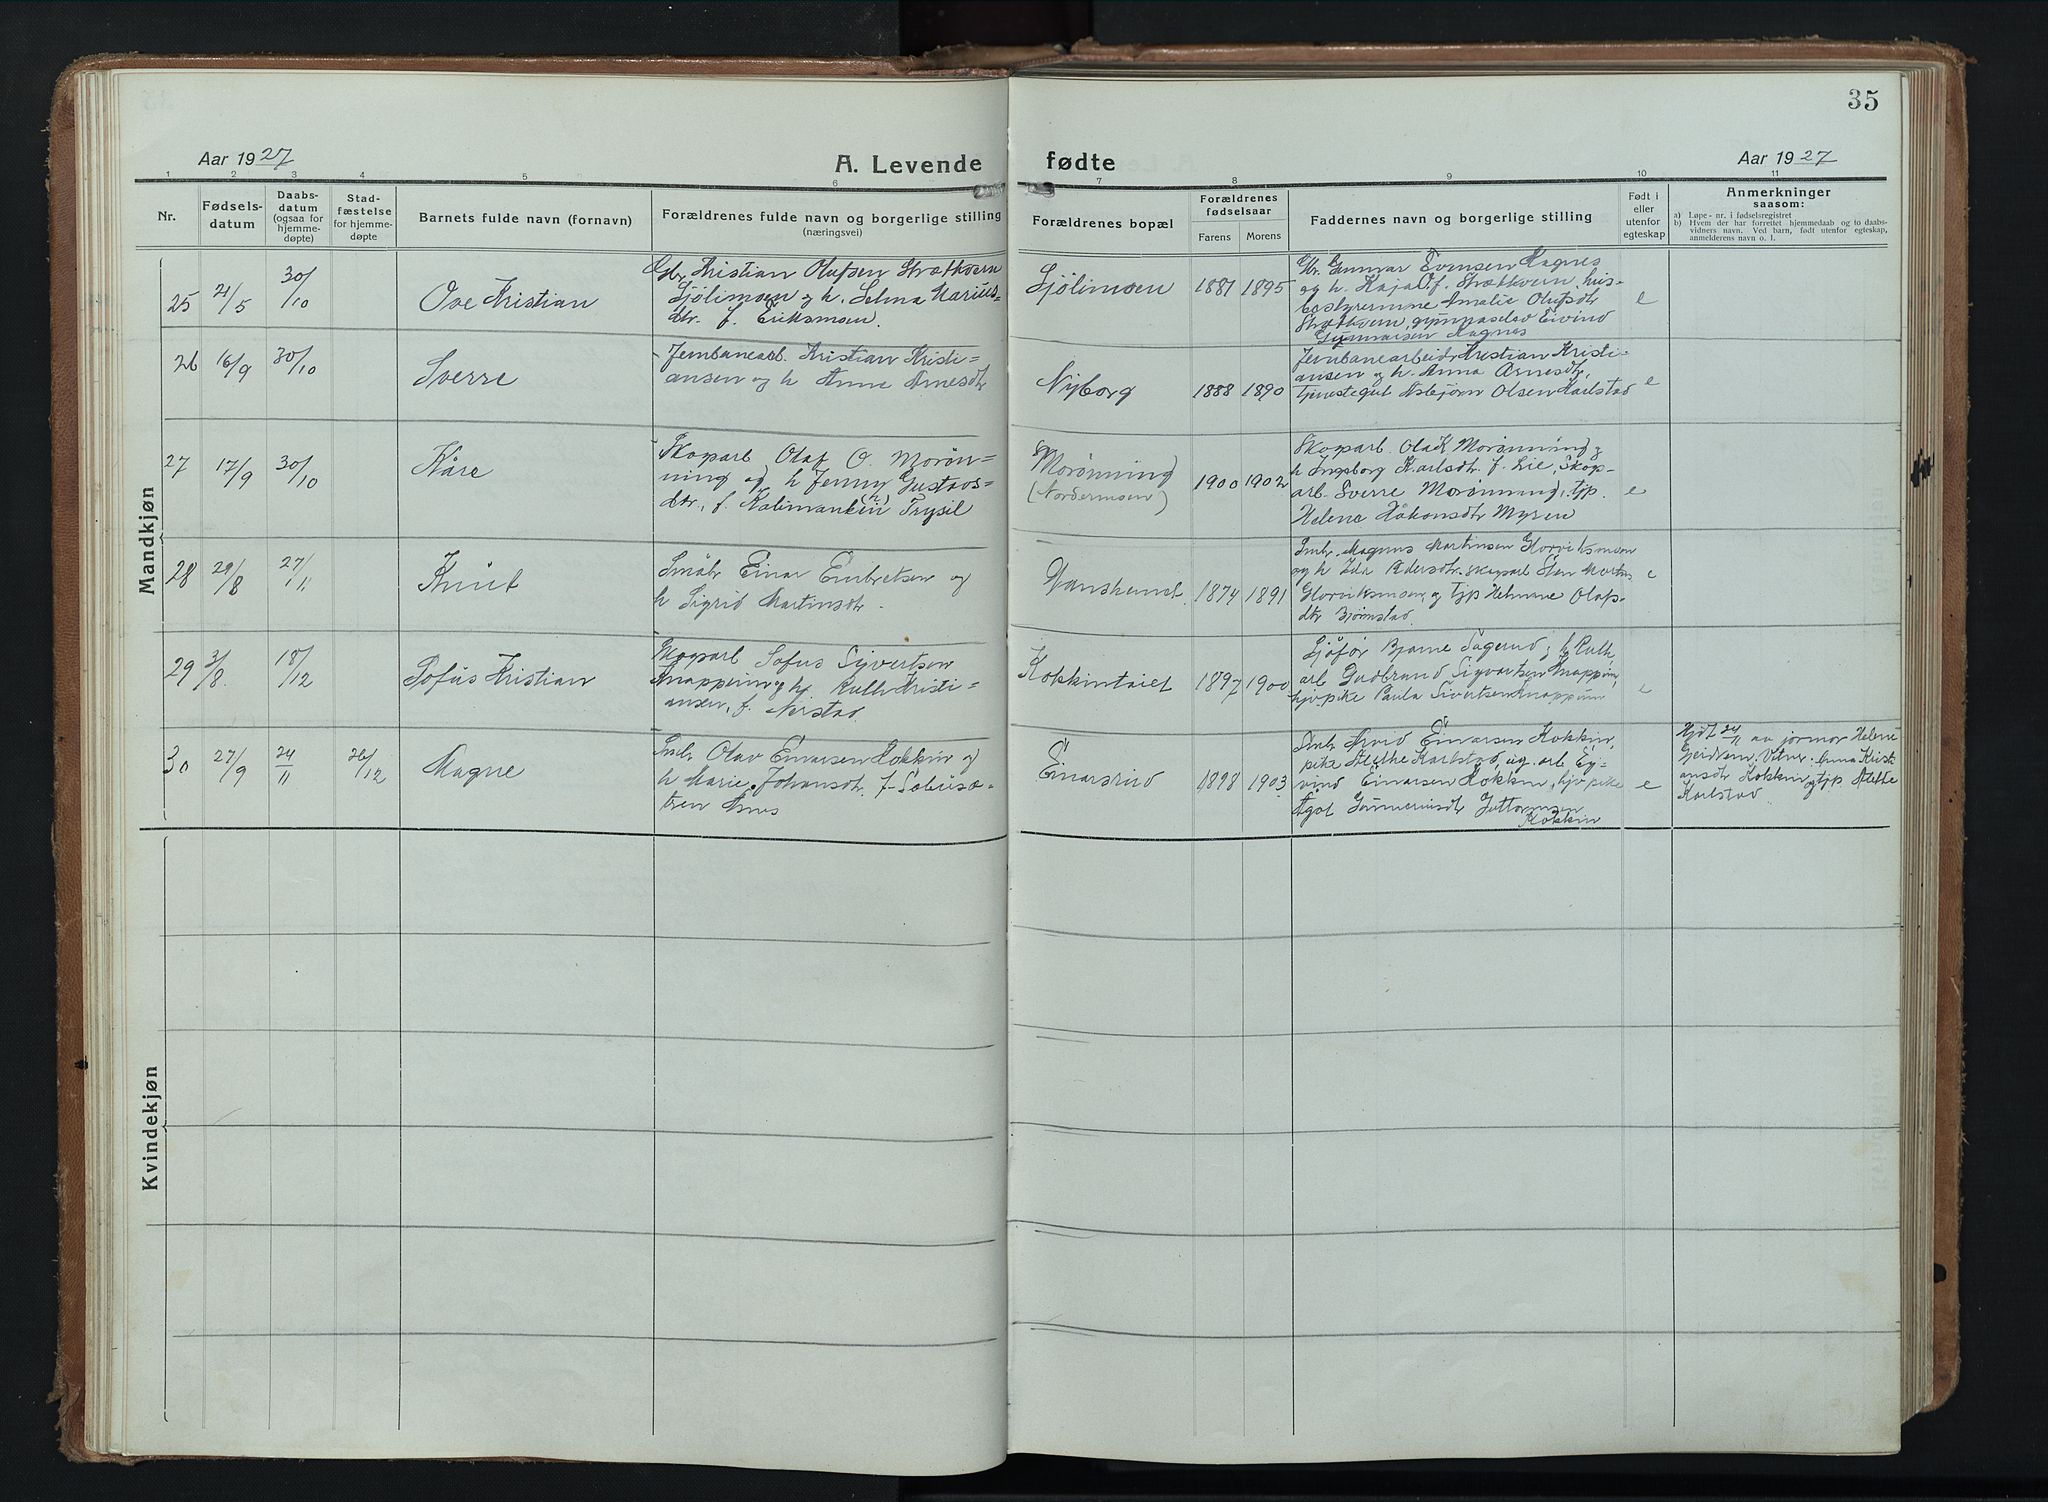 35
Aar 1927
A. Levende fødte
Aar 1927
1 2 3 4 5 6 7 8 9 10 11
Nr.
Fødsels-
datum
Daabs-
datum
(ogsaa for
hjemme-
døpte)
Stad-
fæstelse
for hjemme-
døpte
Barnets fulde navn (fornavn)
Forældrenes fulde navn og borgerlige stilling
(næringsvei)
Forældrenes bopæl
Forældrenes
fødselsaar
Farens Morens
Faddernes navn og borgerlige stilling
Født i
eller
utenfor
egteskap
Anmerkninger
saasom:
a) Løpe-nr. i fødselsregistret
b) Hvem der har forrettet hjemmedaab og to daabs-
vidners navn. Ved barn, født utenfor egteskap,
anmelderens navn o. l.
Mandkjøn
25 21/5 30/10
Ove Kristian
Gbr. Kristian Olafsen Strætkvern
Sjölimoen og h. Selma Marius-
dtr. f. Eriksmoen.
Sjölimoen 1881 1895
Gbr. Gunnar Evensen Magnes
og h. Kaja O. f. Strætkvern, hus-
bestyrerinne Amalie Olafsdtr
Strætkvern, gymnaselev Eivind
Gunnarsen Magnes
e
26 16/9 30/10
Sverre
Jernbanearb. Kristian Kristi-
ansen og h Anna Arnesdtr
Nyborg 1888 1890
Jernbanearbeidr Kristian Kristi-
ansen og h. Anna Arnesdtr,
Tjenestegut Asbjørn Olsen Karlstad
e
27 17/9 30/10
Kåre
Skogarb Olaf O. Morön-
ning og h Jenny Gustavs-
dtr, f. (h) Trysil
Morönning
(Nordermoen)
1900 1902
Skogarb. Ola K Morönning og
h Ingeborg Karlsdtr. f. Lie, Skog-
arb. Sverre Morönning, tjp.
Helena Håkonsdtr Myren
e
28 29/8 27/11
Knut
Småbr Einar Embretsen og
h Sigrid Martinsdtr.
1874 1891
Smbr. Magnus Martinsen Glorviksmoen
og h Ida Pedersdtr. skogarb Sten Martins
Glorviksmoen, og tjp Helmine Olaf-
dtr Björnstad.
e
29 3/8. 18/12
Sofus Kristian
Skogarb Sofus Syvertsen
Knappum og h. Ruth Kristi-
ansen, f. Nerstad
Kokkintaiet 1897 1900
Sjåfør Bjarne Sagerud, h Ruth,
arb Gudbrand Sigvartsen Knappum,
hjv pike Paula Sivertsen Knappum
e
30 27/9 24/11 26/12
Magne
Smbr Olav Einarsen Kokkin og
h Marie Johansdtr f.
tren Åsnes
Einarsrud 1898 1903
Smbr Arvid Einarsen Kokkin,
pike Alethe Karlstad, ug. arb Ey-
vind Einarsen Kokkin, hjv pike
Ågot Guttormsen
Kokkin
e
Hjdt 24/11 av jormor Helene
Vitner Anna Kristi
ansdtr Kokkin og tjp. Alethe
Karlstad
Kvindekjøn